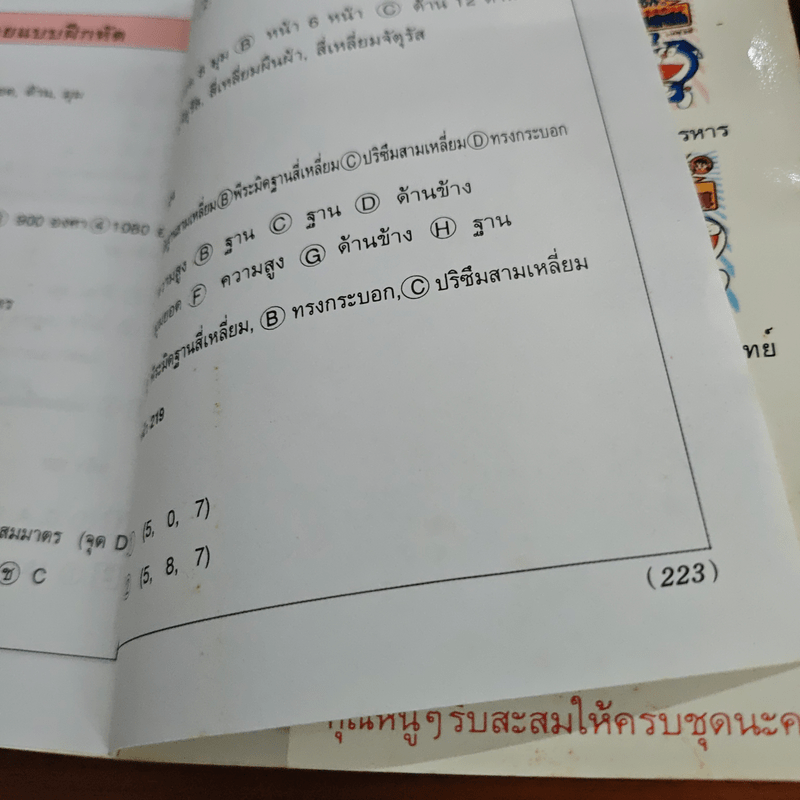 ยแบบฝึกหัด
ด้าน, มุม
900 องศา ④ 1080
สมมาตร (จุด D)
ช C
มุม Ⓑ หน้า 6 หน้า Ⓒ ด้าน 12
สี่เหลี่ยมผืนผ้า, สี่เหลี่ยมจัตุรัส
สามเหลี่ยม Ⓑ พีระมิดฐานสี่เหลี่ยม Ⓒ ปริซึมสามเหลี่ยม Ⓓ ทรงกระบอก
Ⓑ ฐาน Ⓒ ฐาน Ⓓ ด้านข้าง
Ⓕ ความสูง Ⓖ ด้านข้าง Ⓗ ฐาน
พีระมิดฐานสี่เหลี่ยม, Ⓑ ทรงกระบอก, Ⓒ ปริซึมสามเหลี่ยม
219
(5, 0, 7)
(5, 8, 7)
(223)
รหาร
ทย์
คุณหนูๆ รีบสะสมให้ครบชุดนะค